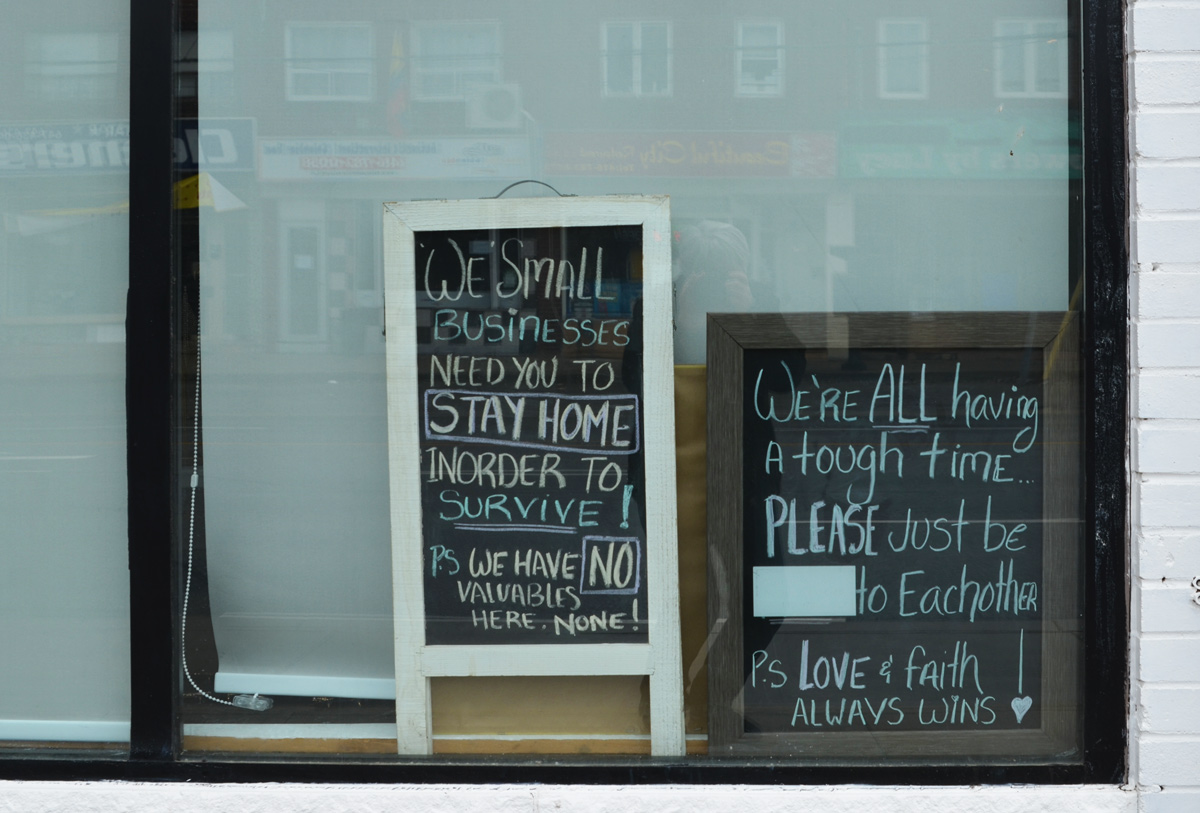 'WE' SMALL
BUSINESSES
NEED YOU TO
STAY HOME
INORDER TO
SURVIVE!
P.S WE HAVE NO
VALUABLES
HERE. NONE!
WE'RE ALL having
A tough time...
PLEASE Just be
to Eachother
P.S LOVE & faith
ALWAYS WINS!
Beautiful City